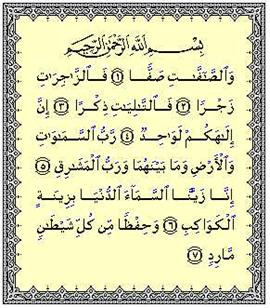 بِسْمِ ٱللَّهِ ٱلرَّحْمَٰنِ ٱلرَّحِيمِ
وَٱلصَّٰٓفَّٰتِ صَفًّا ١ فَٱلزَّٰجِرَٰتِ
زَجْرًا ٢ فَٱلتَّٰلِيَٰتِ ذِكْرًا ٣ إِنَّ
إِلَٰهَكُمْ لَوَٰحِدٌ ٤ رَّبُّ ٱلسَّمَٰوَٰتِ
وَٱلْأَرْضِ وَمَا بَيْنَهُمَا وَرَبُّ ٱلْمَشَٰرِقِ ٥
إِنَّا زَيَّنَّا ٱلسَّمَآءَ ٱلدُّنْيَا بِزِينَةٍ
ٱلْكَوَاكِبِ ٦ وَحِفْظًا مِّن كُلِّ شَيْطَٰنٍ
مَّارِدٍ ٧